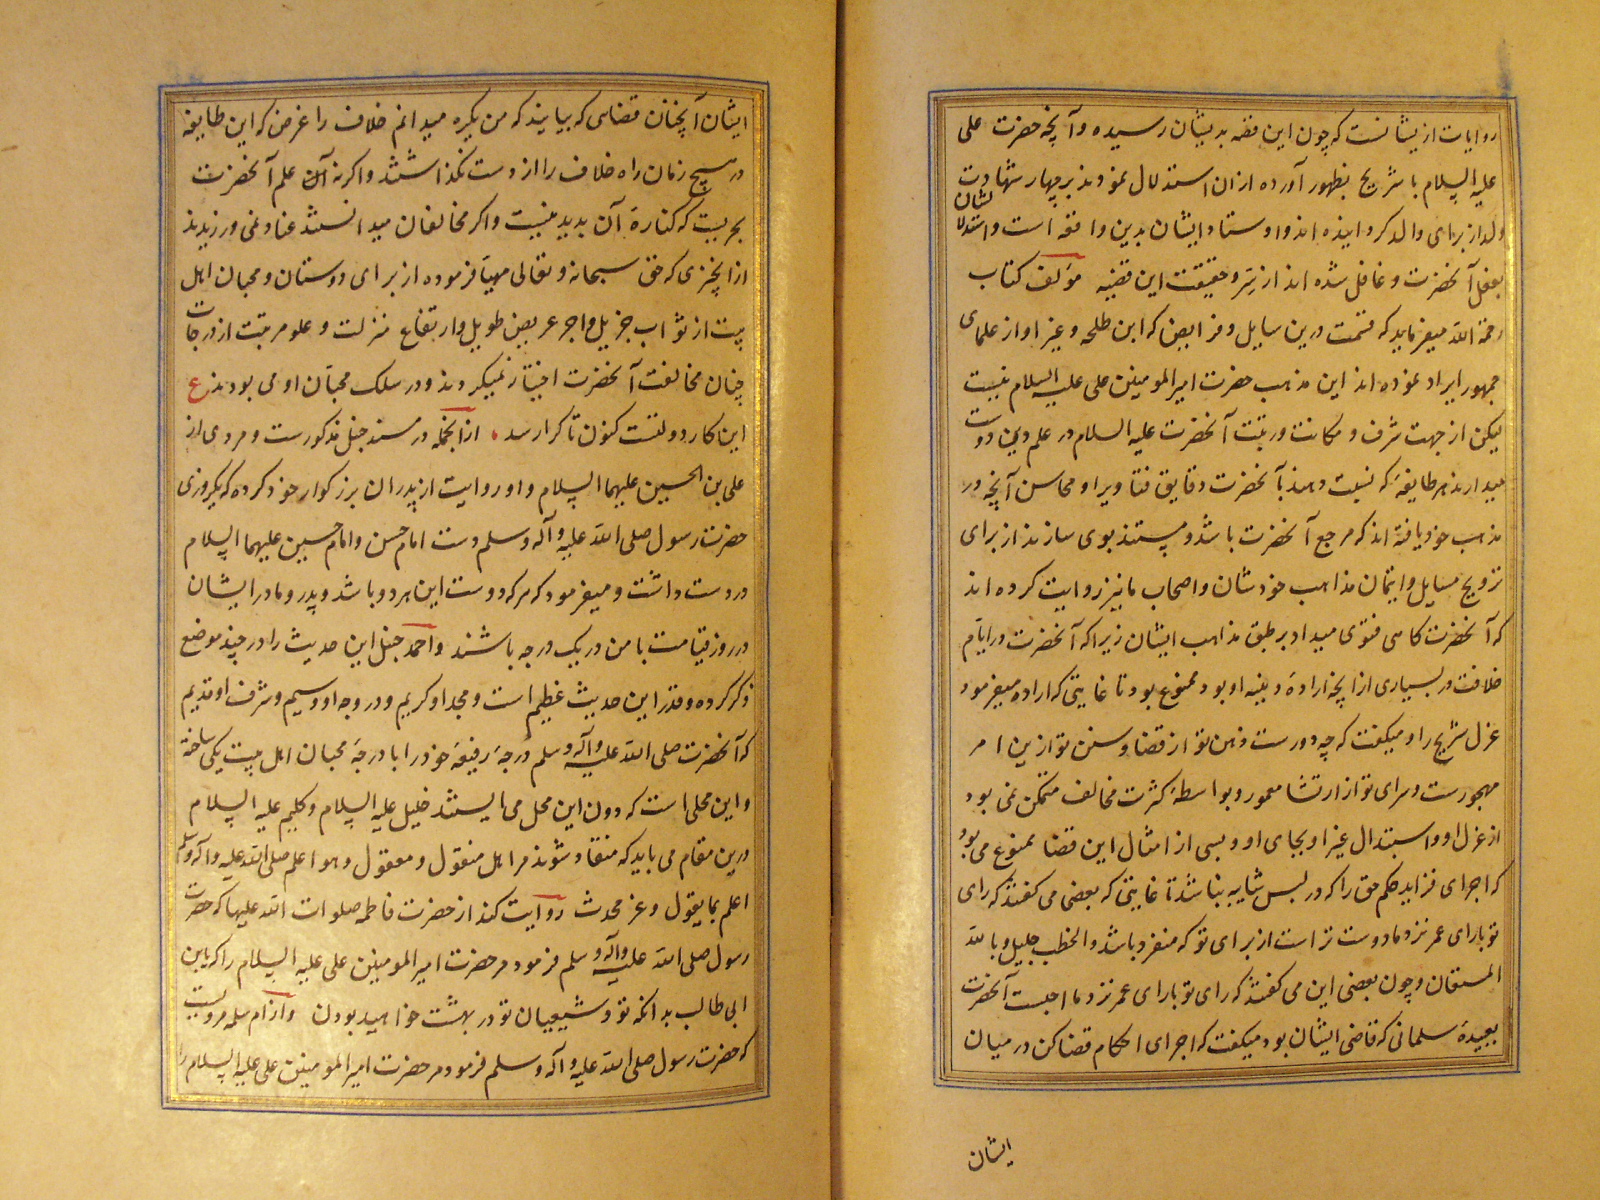 روایات ازیشانست که چون این قصه بدیشان رسیده و آنچه حضرت علی
علیه السلام با شریح بظهور آورده ازان استدلال نمودند بر چهار شهادت
ولد از برای والد کرد اینده اند و اوستاد ایشان بدین واقعه است و استدلال ایشان
بفعل آنحضرت و غافل شده اند از سر و حقیقت این قضیه مؤلف کتاب
رحمة الله میفرماید که قسمت درین مسایل و فرایض که ابن طلحه و غیر او از علمای
جمهور ایراد نموده اند این مذهب حضرت امیر المومنین علی علیه السلام نیست
لیکن از جهت شرف و مکانت و رتبت آنحضرت علیه السلام در علم دین دوست
میدارند هر طایفه که نسبت دهند بآنحضرت دقایق فتاوی را و محاسن آنچه در
مذهب خود یافته اند که مرجع آنحضرت باشد و مستند بوی سازند از برای
ترویج مسایل و اتمان مذاهب خودشان و اصحاب ما نیز روایت کرده اند
که آنحضرت کاهی فتوی میداد بر طبق مذاهب ایشان زیرا که آنحضرت در ایام
خلافت در بسیاری از آنچه اراده دینیه او بود ممنوع بود تا غایتی که اراده میفرمود
عزل شریح را و میکفت که چه دورست ذهن تو از قضا و سنن تو ازین امر
مهجورست و سرای تو از ارتشا معمور و بواسطه کثرت مخالف متمکن نمی بود
از عزل او و استبدال غیر او بجای او و بسی از امثال این قضا ممنوع می بود
که اجرای فرماید حکم حق را که در لبس شایبه نباشد تا غایتی که بعضی می کفتند که رای
تو با رای عمر نزد ما دوست تر است از برای تو که منفرد باشد و الخطب جلیل و بالله
المستعان و چون بعضی این می کفتند که رای تو با رای عمر نزد ما احبست آنحضرت
بعبیدهٔ سلمانی که قاضی ایشان بود میکفت که اجرای احکام قضا کن در میان
ایشان
ایشان آنچنان قضای که بیایند که من یکره میدانم خلاف را غرض که این طایفه
در هیچ زمان راه خلاف را از دست نکذاشتند و اکرنه آن علم آنحضرت
بحریست که کنارهٔ آن پدید نیست و اکر مخالفان میدانستند عناد نمی ورزیدند
از آنچیزی که حق سبحانه و تعالی مهیا فرموده از برای دوستان و محبان اهل
بیت از ثواب جزیل و اجر عریض طویل و ارتفاع منزلت و علو مرتبت از درجات
جنان مخالفت آنحضرت اختیار نمیکردند و در سلک محبان او می بودند ع
این کار دولتست کنون تا کرا رسد ازانجمله در مسند حنبل مذکورست و مروی از
علی بن الحسین علیهما السلام و او روایت از پدران بزرکوار خود کرده که یکروزی
حضرت رسول صلی الله علیه و آله و سلم دست امام حسن و امام حسین علیهما السلام
در دست داشت و میفرمود که هر که دوست این هر دو باشد و پدر و مادر ایشان
در روز قیامت با من در یک درجه باشند و احمد حنبل این حدیث را در چند موضع
ذکر کرده و قدر این حدیث عظیم است و مجد او کریم و در وجه او وسیم و شرف او قدیم
که آنحضرت صلی الله علیه و آله و سلم درجهٔ رفیعهٔ خود را با درجهٔ محبان اهل بیت یکی ساخته
و این محلی است که دون این محل می ایستند خلیل علیه السلام و کلیم علیه السلام
درین مقام می باید که منقاد شوند مر اهل منقول و معقول و هو اعلم صلی الله علیه و آله و سلم
اعلم بما یقول و عز محدث روایت کند از حضرت فاطمه صلوات الله علیها که حضرت
رسول صلی الله علیه و آله و سلم فرمود مر حضرت امیر المومنین علی علیه السلام را که یا بن
ابی طالب بدانکه تو و شیعیان تو در بهشت خواهید بودن و از ام سلمه مرویست
که حضرت رسول صلی الله علیه و آله و سلم فرمود مر حضرت امیر المومنین علی علیه السلام را